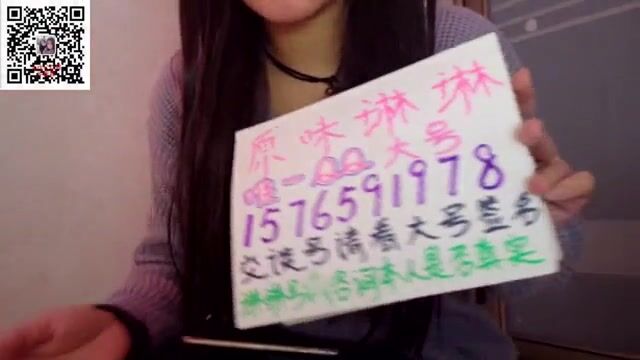 原味琳琳
唯一QQ大号
1576591978
交谈号请看大号签名
是否真实